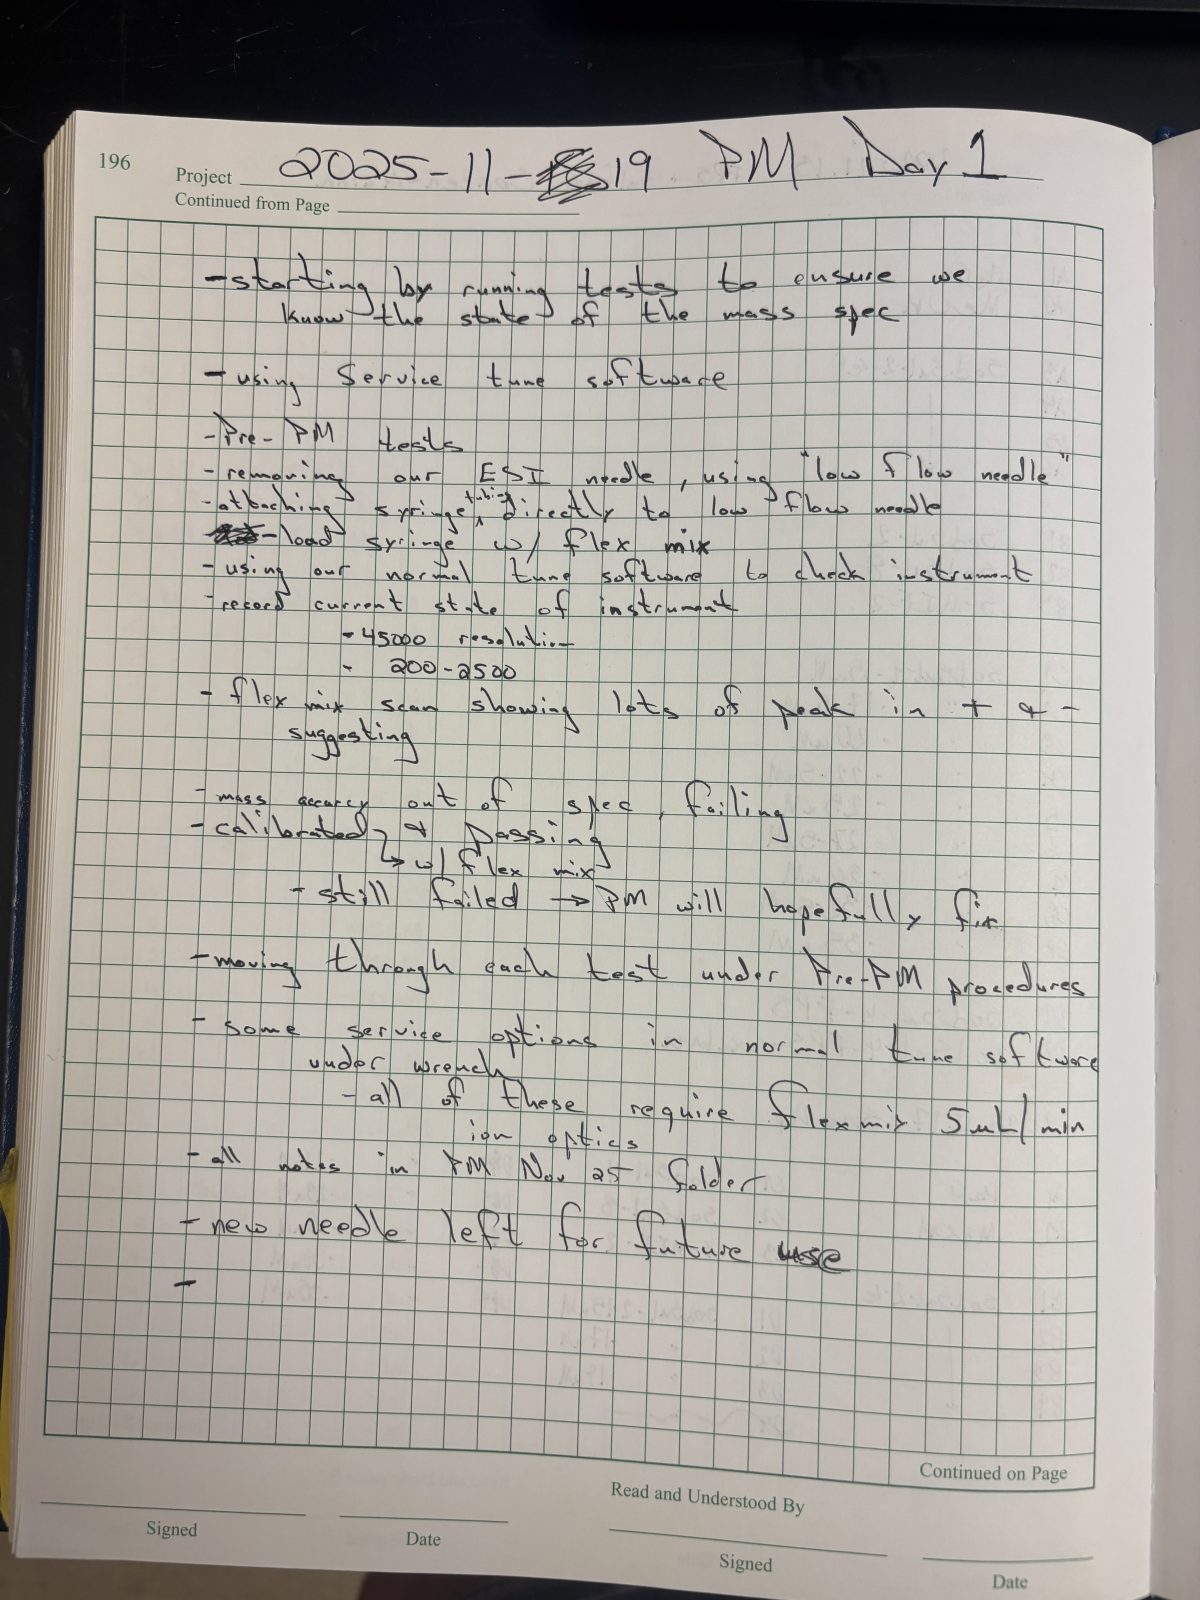 196
Project 2025-11-19 PM Day 1
Continued from Page
- starting by running tests to ensure we
know the state of the mass spec
- using Service tune software
- Pre-PM tests
- removing our ESI needle, using "low flow needle"
- attaching syringe tubing directly to low flow needle
- load syringe w/ flex mix
- using our normal tune software to check instrument
- record current state of instrument
- 45000 resolution
- 200-2500
- flex mix scan showing lots of peak in + & -
suggesting
- mass accuracy out of spec, failing
- calibrated & passing
↳ w/ flex mix
- still failed → PM will hopefully fix
- moving through each test under Pre-PM procedures
- some service options in normal tune software
under wrench
- all of these require flexmix 5uL/min
ion optics
- all notes in PM Nov 25 folder
- new needle left for future use
-
Continued on Page
Read and Understood By
Signed
Date
Signed
Date